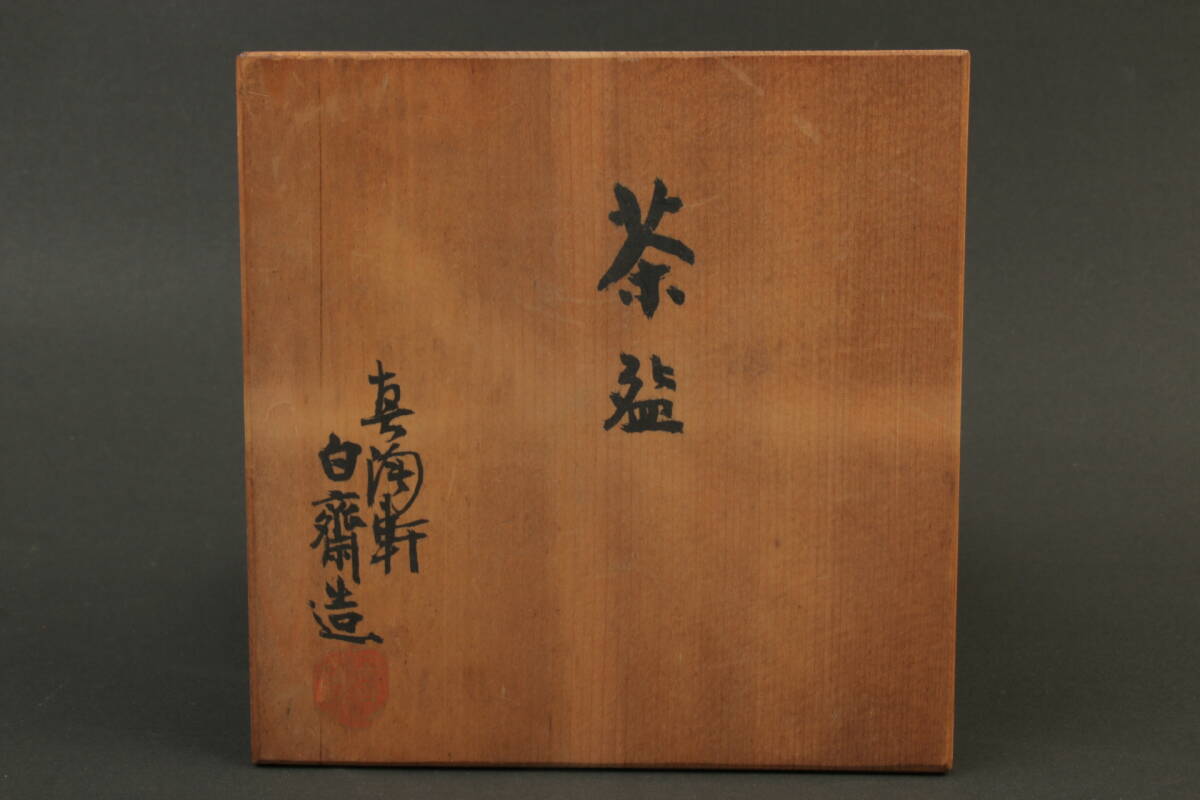 茶盌
真陶軒
白齋造